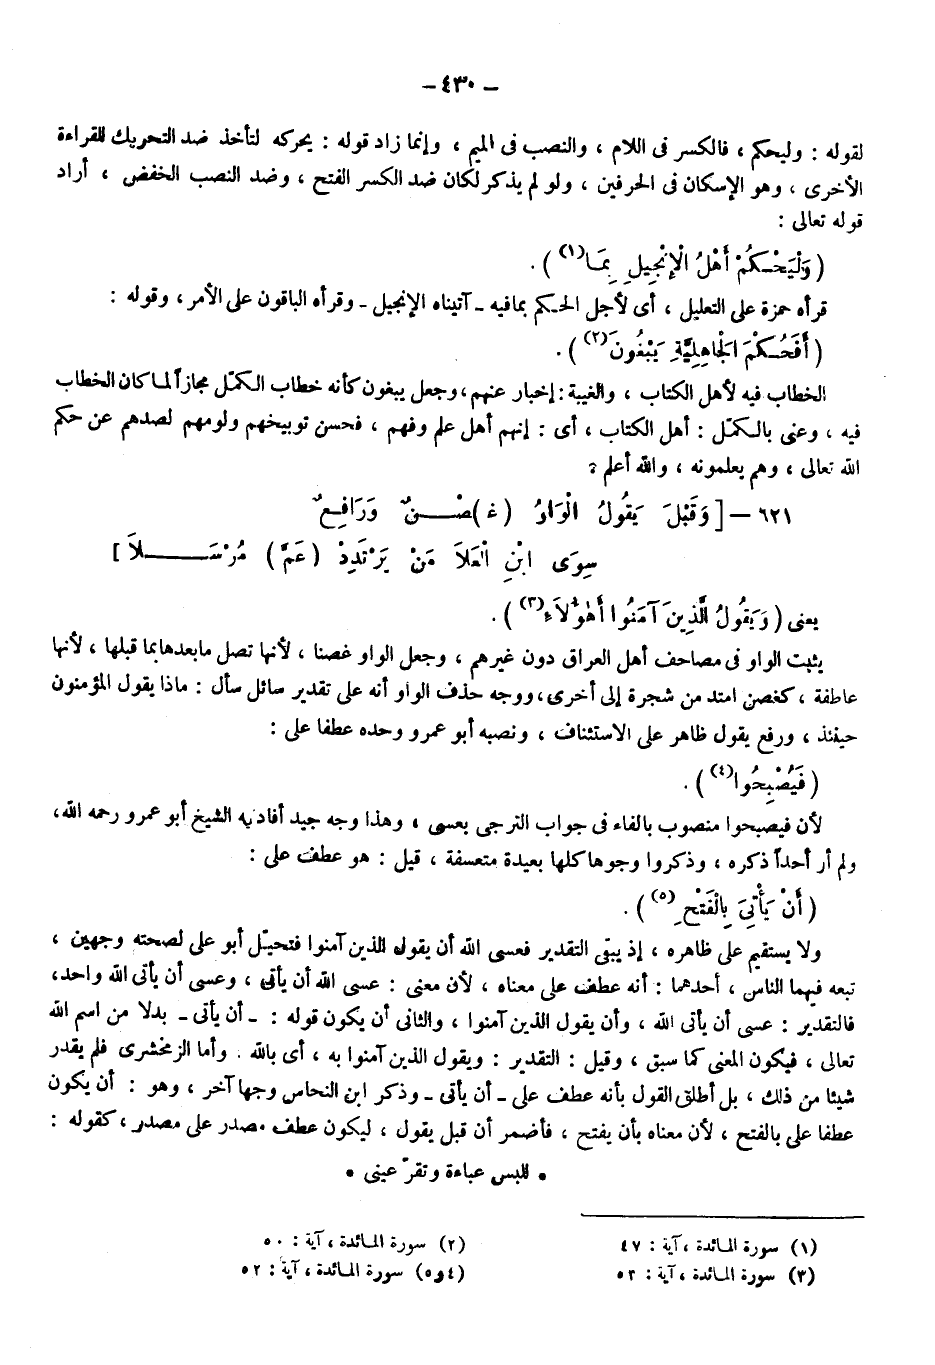 - ٤٣٠ -
لقوله : وليحكم ، فالكسر فى اللام ، والنصب فى الميم ، وإنما زاد قوله : يحركه لتأخذ ضد التحريك للقراءة
الأخرى ، وهو الإسكان فى الحرفين ، ولو لم يذكر لكان ضد الكسر الفتح ، وضد النصب الخفض ، أراد
قوله تعالى :
( وَلْيَحْكُمْ أَهْلُ الْإِنْجِيلِ بِمَا(١) ) .
قرأه حمزة على التعليل ، أى لأجل الحكم بمافيه ـ آتيناه الإنجيل ـ وقرأه الباقون على الأمر ، وقوله :
( أَفَحُكْمَ الْجَاهِلِيَّةِ يَبْغُونَ(٢) ) .
الخطاب فيه لأهل الكتاب ، والغيبة : إخبار عنهم ، وجعل يبغون كأنه خطاب الكمّل مجازاً لما كان الخطاب
فيه ، وعنى بالكمّل : أهل الكتاب ، أى : إنهم أهل علم وفهم ، فحسن توبيخهم ولومهم لصدهم عن حكم
الله تعالى ، وهم يعلمونه ، والله أعلم ؟
٦٢١ – [ وَقَبْلَ يَقُولُ الْوَاوُ (غ)صْنٌ وَرَافِعٌ
سِوَى ابْنِ الْعَلَا مَنْ يَرْتَدِدْ (عَمَّ) مُرْسَلَا ]
يعنى ( وَيَقُولُ الَّذِينَ آمَنُوا أَهٰؤُلَاءِ(٣) ) .
يثبت الواو فى مصاحف أهل العراق دون غيرهم ، وجعل الواو غصنا ، لأنها تصل مابعدها بما قبلها ، لأنها
عاطفة ، كغصن امتد من شجرة إلى أخرى ، ووجه حذف الواو أنه على تقدير سائل سأل : ماذا يقول المؤمنون
حينئذ ، ورفع يقول ظاهر على الاستئناف ، ونصبه أبو عمرو وحده عطفا على :
( فَيُصْبِحُوا(٤) ) .
لأن فيصبحوا منصوب بالفاء فى جواب الترجى بعسى ، وهذا وجه جيد أفادنيه الشيخ أبو عمرو رحمه الله ،
ولم أر أحداً ذكره ، وذكروا وجوها كلها بعيدة متعسفة ، قيل : هو عطف على :
( أَنْ يَأْتِيَ بِالْفَتْحِ (٥) ) .
ولا يستقيم على ظاهره ، إذ يبقى التقدير فعسى الله أن يقول الذين آمنوا فتحيّل أبو على لصحته وجهين ،
تبعه فيهما الناس ، أحدهما : أنه عطف على معناه ، لأن معنى : عسى الله أن يأتى ، وعسى أن يأتى الله واحد،
فالتقدير : عسى أن يأتى الله ، وأن يقول الذين آمنوا ، والثانى أن يكون قوله : ـ أن يأتى ـ بدلا من اسم الله
تعالى ، فيكون المعنى كما سبق ، وقيل : التقدير : ويقول الذين آمنوا به ، أى بالله . وأما الزمخشرى فلم يقدر
شيئا من ذلك ، بل أطلق القول بأنه عطف على ـ أن يأتى ـ وذكر ابن النحاس وجها آخر ، وهو : أن يكون
عطفا على بالفتح ، لأن معناه بأن يفتح ، فأضمر أن قبل يقول ، ليكون عطف مصدر على مصدر ، كقوله :
• للبس عباءة وتقرّ عينى •
(١) سورة المائدة ، آية : ٤٧ (٢) سورة المائدة ، آية : ٥٠
(٣) سورة المائدة ، آية : ٥٣ (٤ و٥) سورة المائدة ، آية : ٥٢